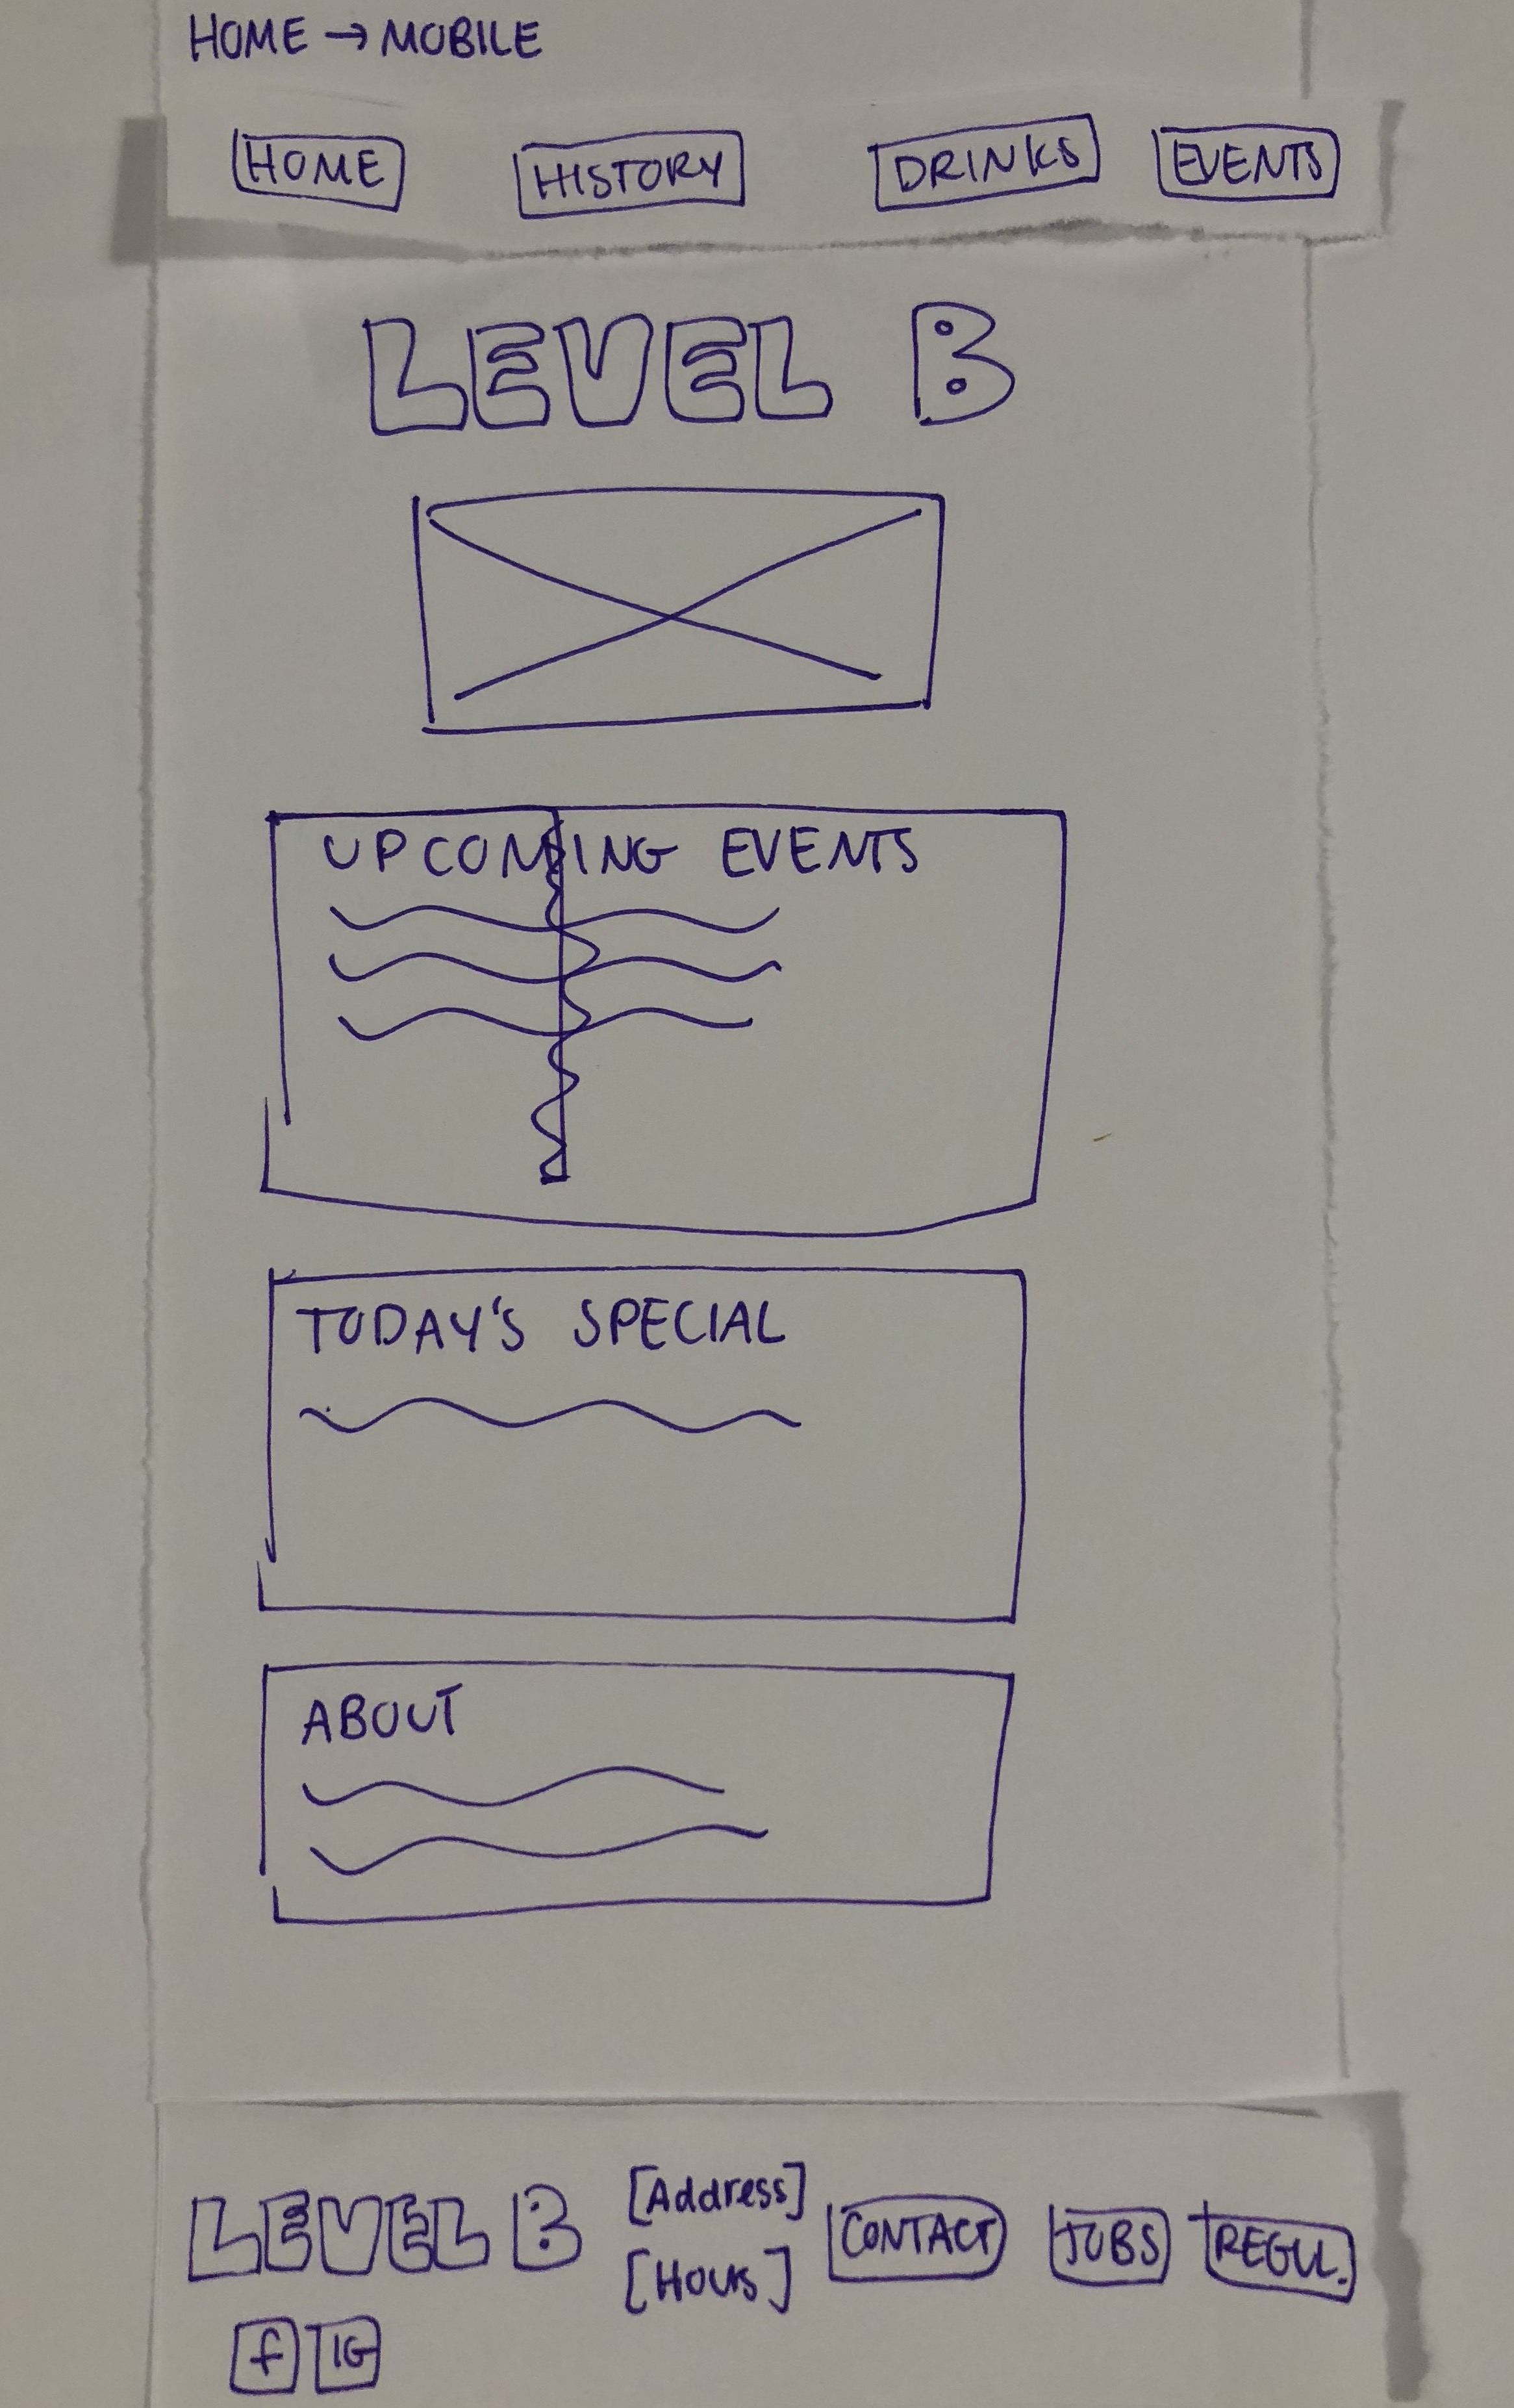 HOME → MOBILE
HOME HISTORY DRINKS EVENTS
LEVEL B
UPCOMING EVENTS
TODAY'S SPECIAL
ABOUT
LEVEL B [Address] CONTACT JOBS REGUL.
[Hours]
f IG